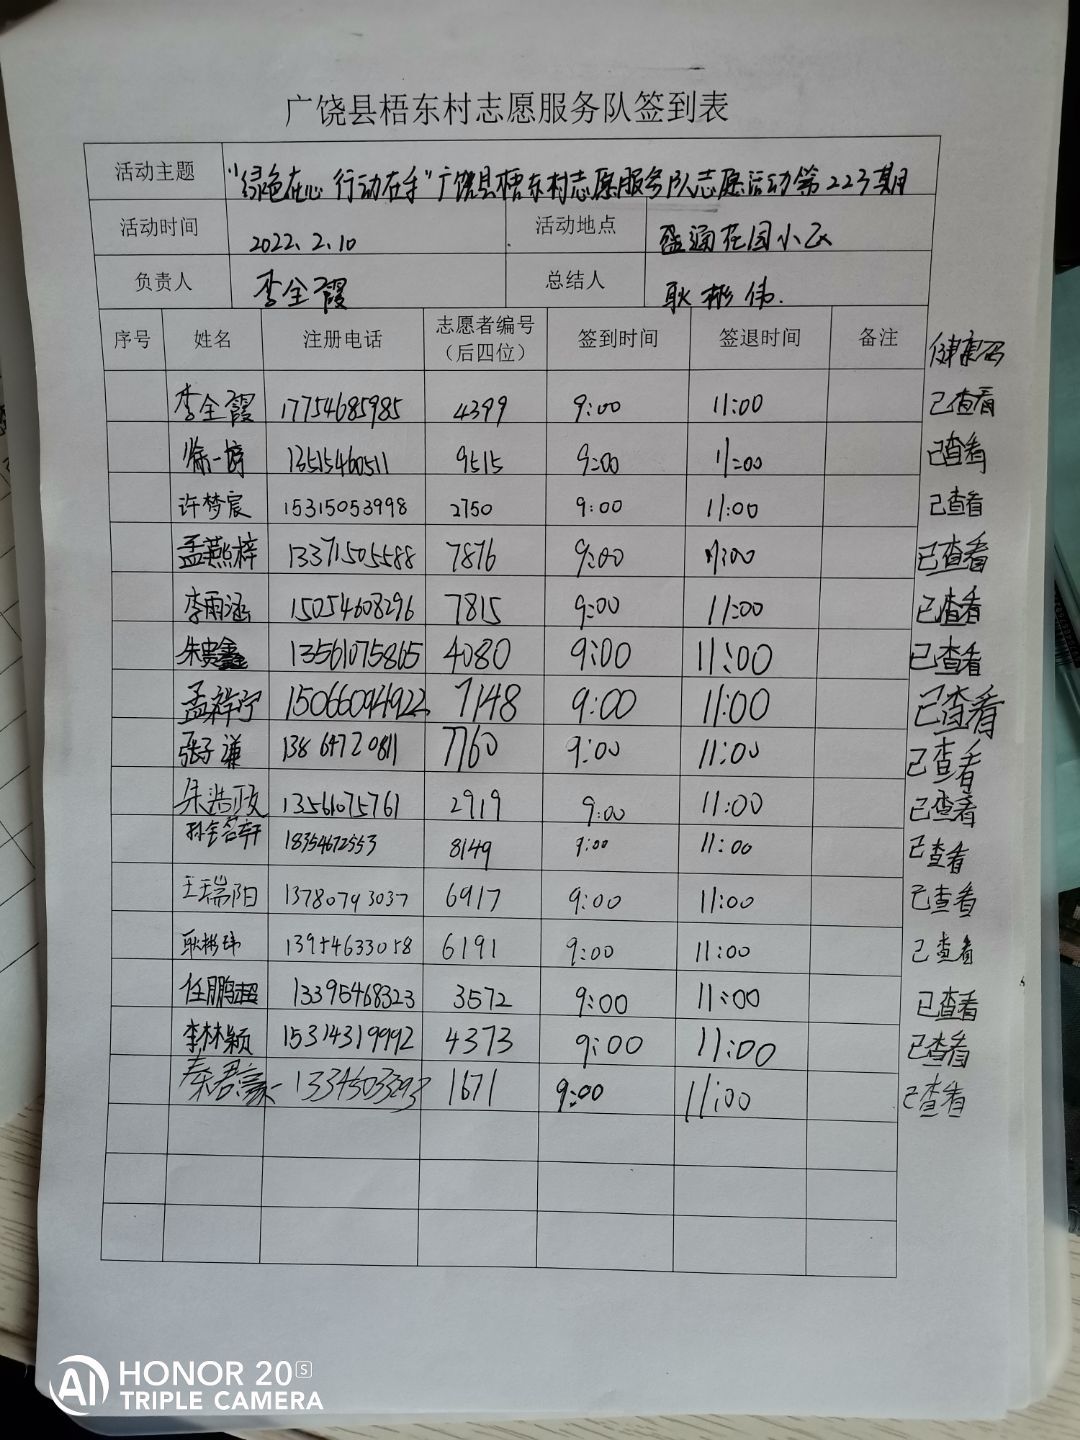 广饶县梧东村志愿服务队签到表
活动主题 "绿色在心 行动在手"广饶县梧东村志愿服务队志愿活动第223期
活动时间 2022.2.10 活动地点 盈通花园小区
负责人 李全霞 总结人 耿彬伟.
序号 姓名 注册电话 志愿者编号（后四位） 签到时间 签退时间 备注 健康码
李全霞 17754685985 4399 9:00 11:00 已查看
徐一 13515460511 9515 9:00 11:00 已查看
许梦宸 15315053998 2750 9:00 11:00 已查看
孟燕梓 13371505588 7876 9:00 11:00 已查看
李雨涵 15054608296 7815 9:00 11:00 已查看
朱贵鑫 13561075865 4080 9:00 11:00 已查看
孟祥宁 15066094922 7148 9:00 11:00 已查看
张子谦 13864720811 7760 9:00 11:00 已查看
朱浩政 13561075761 2919 9:00 11:00 已查看
18354672553 8149 9:00 11:00 已查看
王瑞阳 13780793037 6917 9:00 11:00 已查看
耿彬玮 13954633058 6191 9:00 11:00 已查看
任鹏超 13395468323 3572 9:00 11:00 已查看
李林颖 15314319992 4373 9:00 11:00 已查看
秦君豪 1671 9:00 11:00 已查看
HONOR 20S
TRIPLE CAMERA